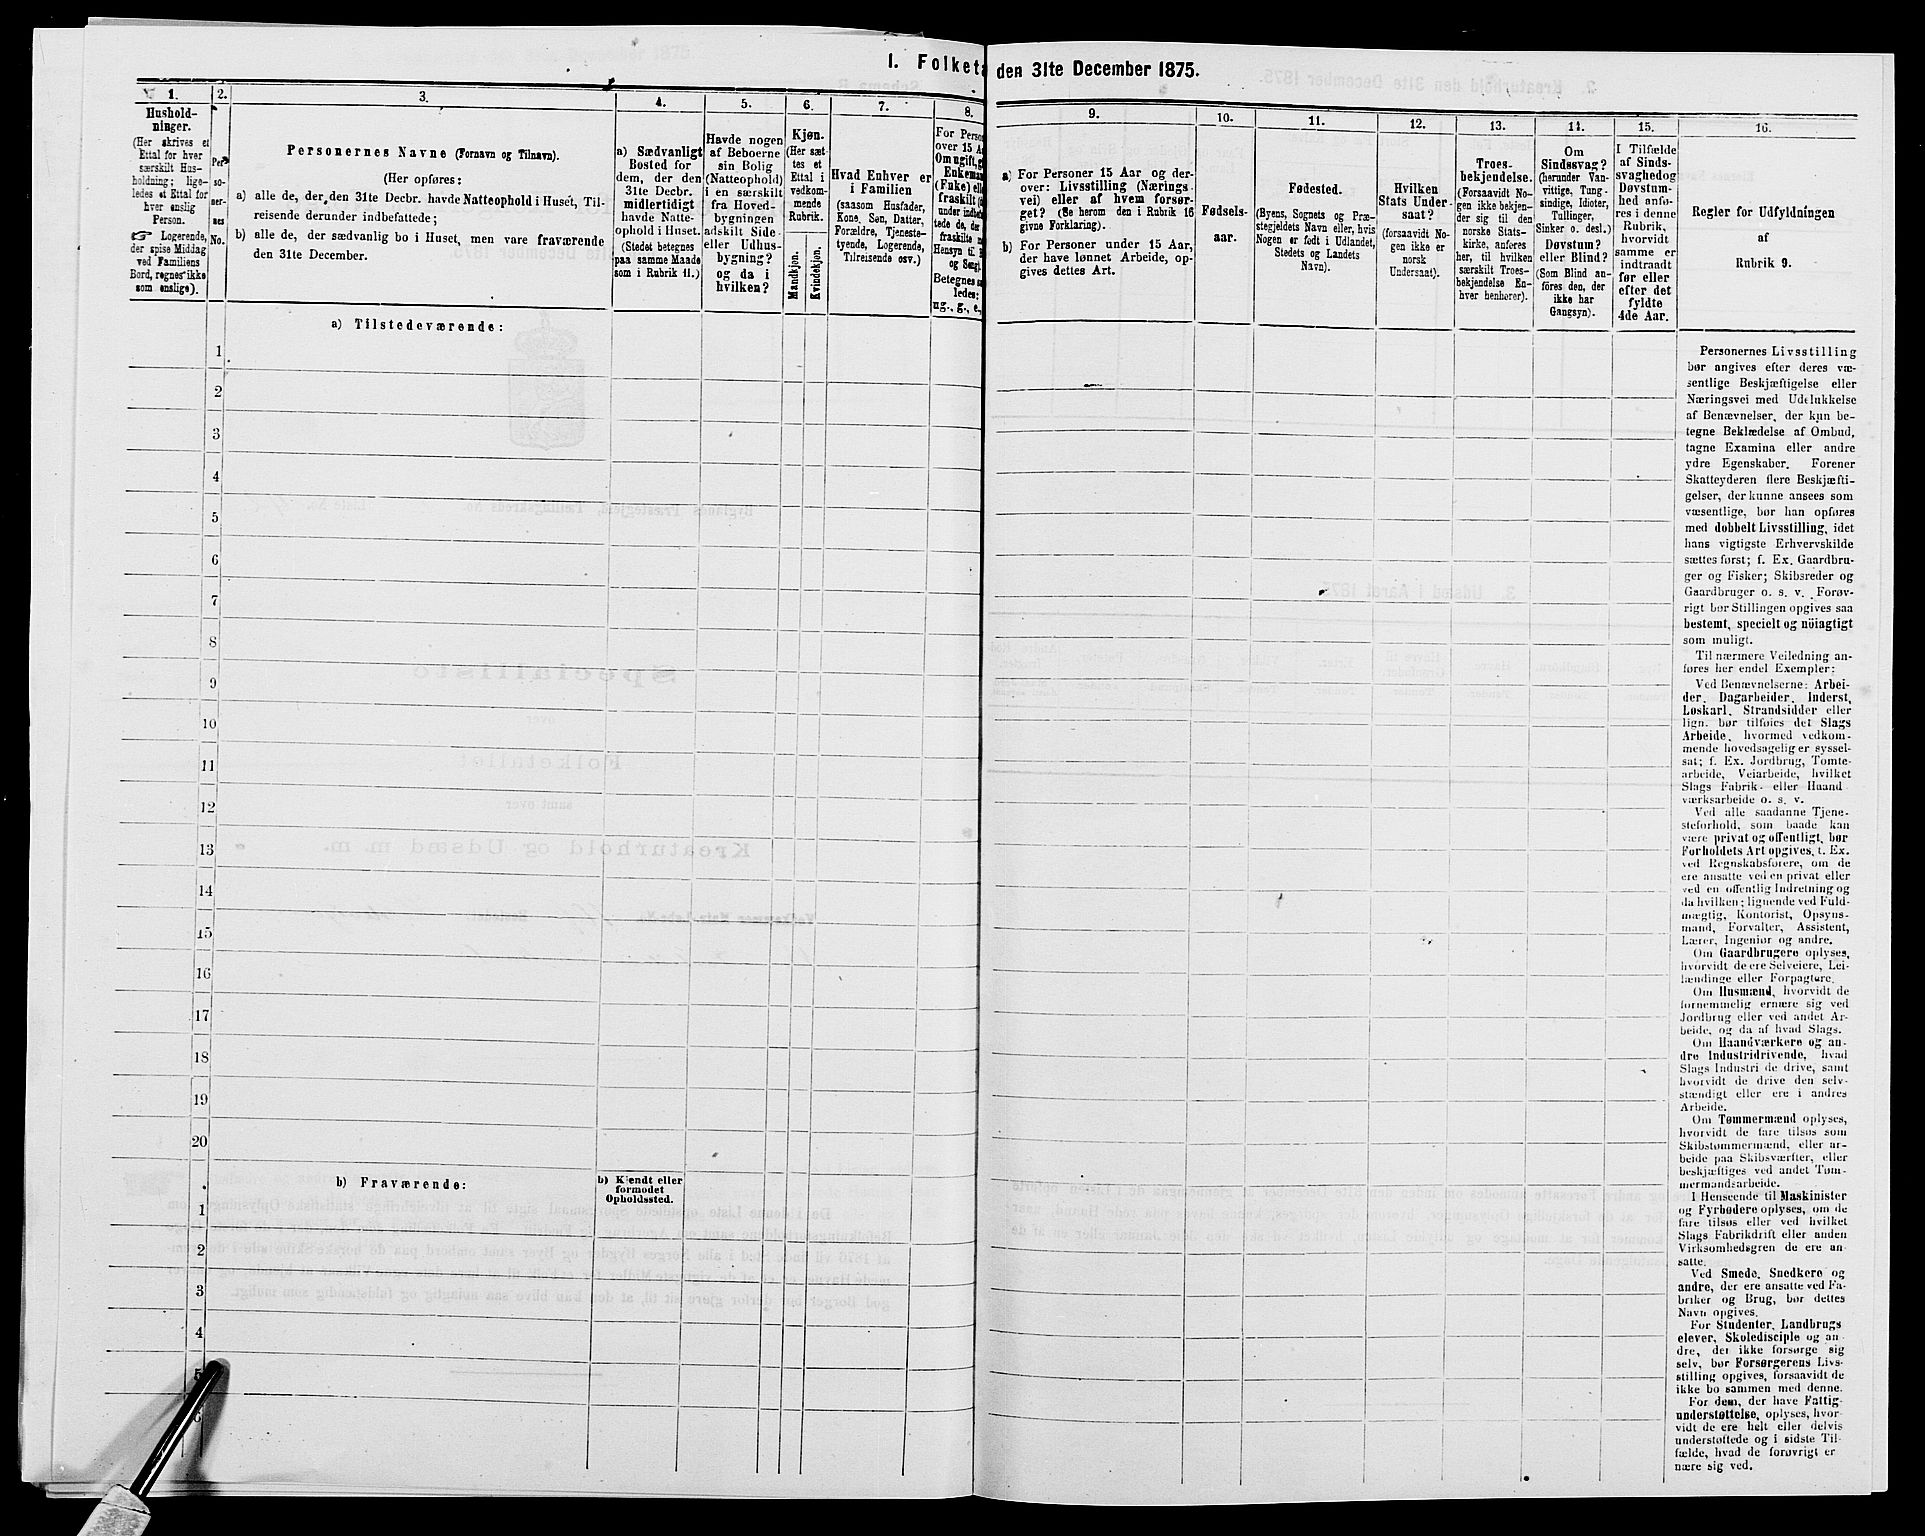 1. Folketal den 31te December 1875.
1.
Hushold-
ninger.
(Her skrives et
Ettal for hver
særskilt Hus-
holdning; lige-
ledes et Ettal for
hver enslig
Person.
☞ Logerende,
der spise Middag
ved Familiens
Bord, regnes ikke
som enslige).
2.
Per-
so-
ner-
nes
No.
3.
Personernes Navne (Fornavn og Tilnavn).
(Her opføres:
a) alle de, der den 31te Decbr. havde Natteophold i Huset, Til-
reisende derunder indbefattede;
b) alle de, der sædvanlig bo i Huset, men vare fraværende
den 31te December.
4.
a) Sædvanligt
Bosted for
dem, der den
31te Decbr.
midlertidigt
havde Natte-
ophold i Huset.
(Stedet betegnes
paa samme Maade
som i Rubrik 11.)
5.
Havde nogen
af Beboerne
sin Bolig
(Natteophold)
i en særskilt
fra Hoved-
bygningen
adskilt Side-
eller Udhus-
bygning?
og da i
hvilken?
6.
Kjøn.
(Her sæt-
tes et
Ettal i
vedkom-
mende
Rubrik.
Mandkjøn.
Kvindekjøn.
7.
Hvad Enhver er
i Familien
(saasom Husfader,
Kone, Søn, Datter,
Forældre, Tjeneste-
tyende, Logerende,
Tilreisende osv.)
8.
For Perso
over 15 A
Om ugift, g
Enkeman
(Enke) elle
fraskilt (
under indbe
tede de, de
fraskilte
Hensyn til
og Seng).
Betegnes
ledes:
ug., g., e.,
9.
a) For Personer 15 Aar og der-
over: Livsstilling (Nærings-
vei) eller af hvem forsør-
get? (Se herom den i Rubrik 16
givne Forklaring).
b) For Personer under 15 Aar,
der have lønnet Arbeide, op-
gives dettes Art.
10.
Fødsels-
aar.
11.
Fødested.
(Byens, Sognets og Præ-
stegjeldets Navn eller, hvis
Nogen er født i Udlandet,
Stedets og Landets
Navn).
12.
Hvilken
Stats Under-
saat?
(forsaavidt No-
gen ikke er
norsk
Undersaat).
13.
Troes-
bekjendelse.
(Forsaavidt No-
gen ikke bekjen-
der sig til den
norske Stats-
kirke, anføres
her, til hvilken
særskilt Troes-
bekjendelse En-
hver henhører).
14.
Om
Sindssvag?
(herunder Van-
vittige, Tung-
sindige, Idioter,
Tullinger,
Sinker o. desl.)
Døvstum?
eller Blind?
(Som Blind an-
føres den, der
ikke har
Gangsyn).
15.
I Tilfælde
af Sinds-
svaghed og
Døvstum-
hed anfø-
res i denne
Rubrik,
hvorvidt
samme er
indtraadt
før eller
efter det
fyldte
4de Aar.
16.
Regler for Udfyldningen
af
Rubrik 9.
a) Tilstedeværende:
1
2
3
4
5
6
7
8
9
10
11
12
13
14
15
16
17
18
19
20
b) Fraværende:
b) Kjendt eller
formodet
Opholdssted.
1
2
3
4
5
6
Personernes Livsstilling
bør angives efter deres væ-
sentlige Beskjæftigelse eller
Næringsvei med Udelukkelse
af Benævnelser, der kun be-
tegne Beklædelse af Ombud,
tagne Examina eller andre
ydre Egenskaber. Forener
Skatteyderen flere Beskjæfti-
gelser, der kunne ansees som
væsentlige, bør han opføres
med dobbelt Livsstilling, idet
hans vigtigste Erhvervskilde
sættes først; f. Ex. Gaardbru-
ger og Fisker; Skibsreder og
Gaardbruger o. s. v. Forøv-
rigt bør Stillingen opgives saa
bestemt, specielt og nöiagtigt
som muligt.
Til nærmere Veiledning an-
føres her endel Exempler:
Ved Benævnelserne: Arbei-
der, Dagarbeider, Inderst,
Løskarl, Strandsidder eller
lign. bør tilføies det Slags
Arbeide, hvormed vedkom-
mende hovedsagelig er syssel-
sat; f. Ex. Jordbrug, Tomte-
arbeide, Veiarbeide, hvilket
Slags Fabrik- eller Haand-
værksarbeide o. s. v.
Ved alle saadanne Tjene-
steforhold, som baade kan
være privat og offentligt, bør
Forholdets Art opgives, f. Ex.
ved Regnskabsførere, om de
ere ansatte ved en privat eller
ved en offentlig Indretning og
da hvilken; lignende ved Fuld-
mægtig, Kontorist, Opsyns-
mand, Forvalter, Assistent,
Lærer, Ingeniør og andre.
Om Gaardbrugere oplyses,
hvorvidt de ere Selveiere, Lei-
lændinge eller Forpagtere.
Om Husmænd, hvorvidt de
fornemmelig ernære sig ved
Jordbrug eller ved andet Ar-
beide, og da af hvad Slags.
Om Haandværkere og an-
dre Industridrivende, hvad
Slags Industri de drive, samt
hvorvidt de drive den selv-
stændigt eller ere i andres
Arbeide.
Om Tømmermænd oplyses,
hvorvidt de fare tilsøs som
Skibstømmermænd, eller ar-
beide paa Skibsværfter, eller
beskjæftiges ved andet Tøm-
mermandsarbeide.
I Henseende til Maskinister
og Fyrbødere oplyses, om de
fare tilsøs eller ved hvilket
Slags Fabrikdrift eller anden
Virksomhedsgren de ere an-
satte.
Ved Smede, Snedkere og
andre, der ere ansatte ved Fa-
briker og Brug, bør dettes
Navn opgives.
For Studenter, Landbrugs-
elever, Skoledisciple og an-
dre, der ikke forsørge sig
selv, bør Forsørgerens Livs-
stilling opgives, forsaavidt de
ikke bo sammen med denne.
For dem, der have Fattig-
understøttelse, oplyses, hvor-
vidt de ere helt eller delvis
understøttede og i sidste Til-
fælde, hvad de forøvrigt er-
nære sig ved.